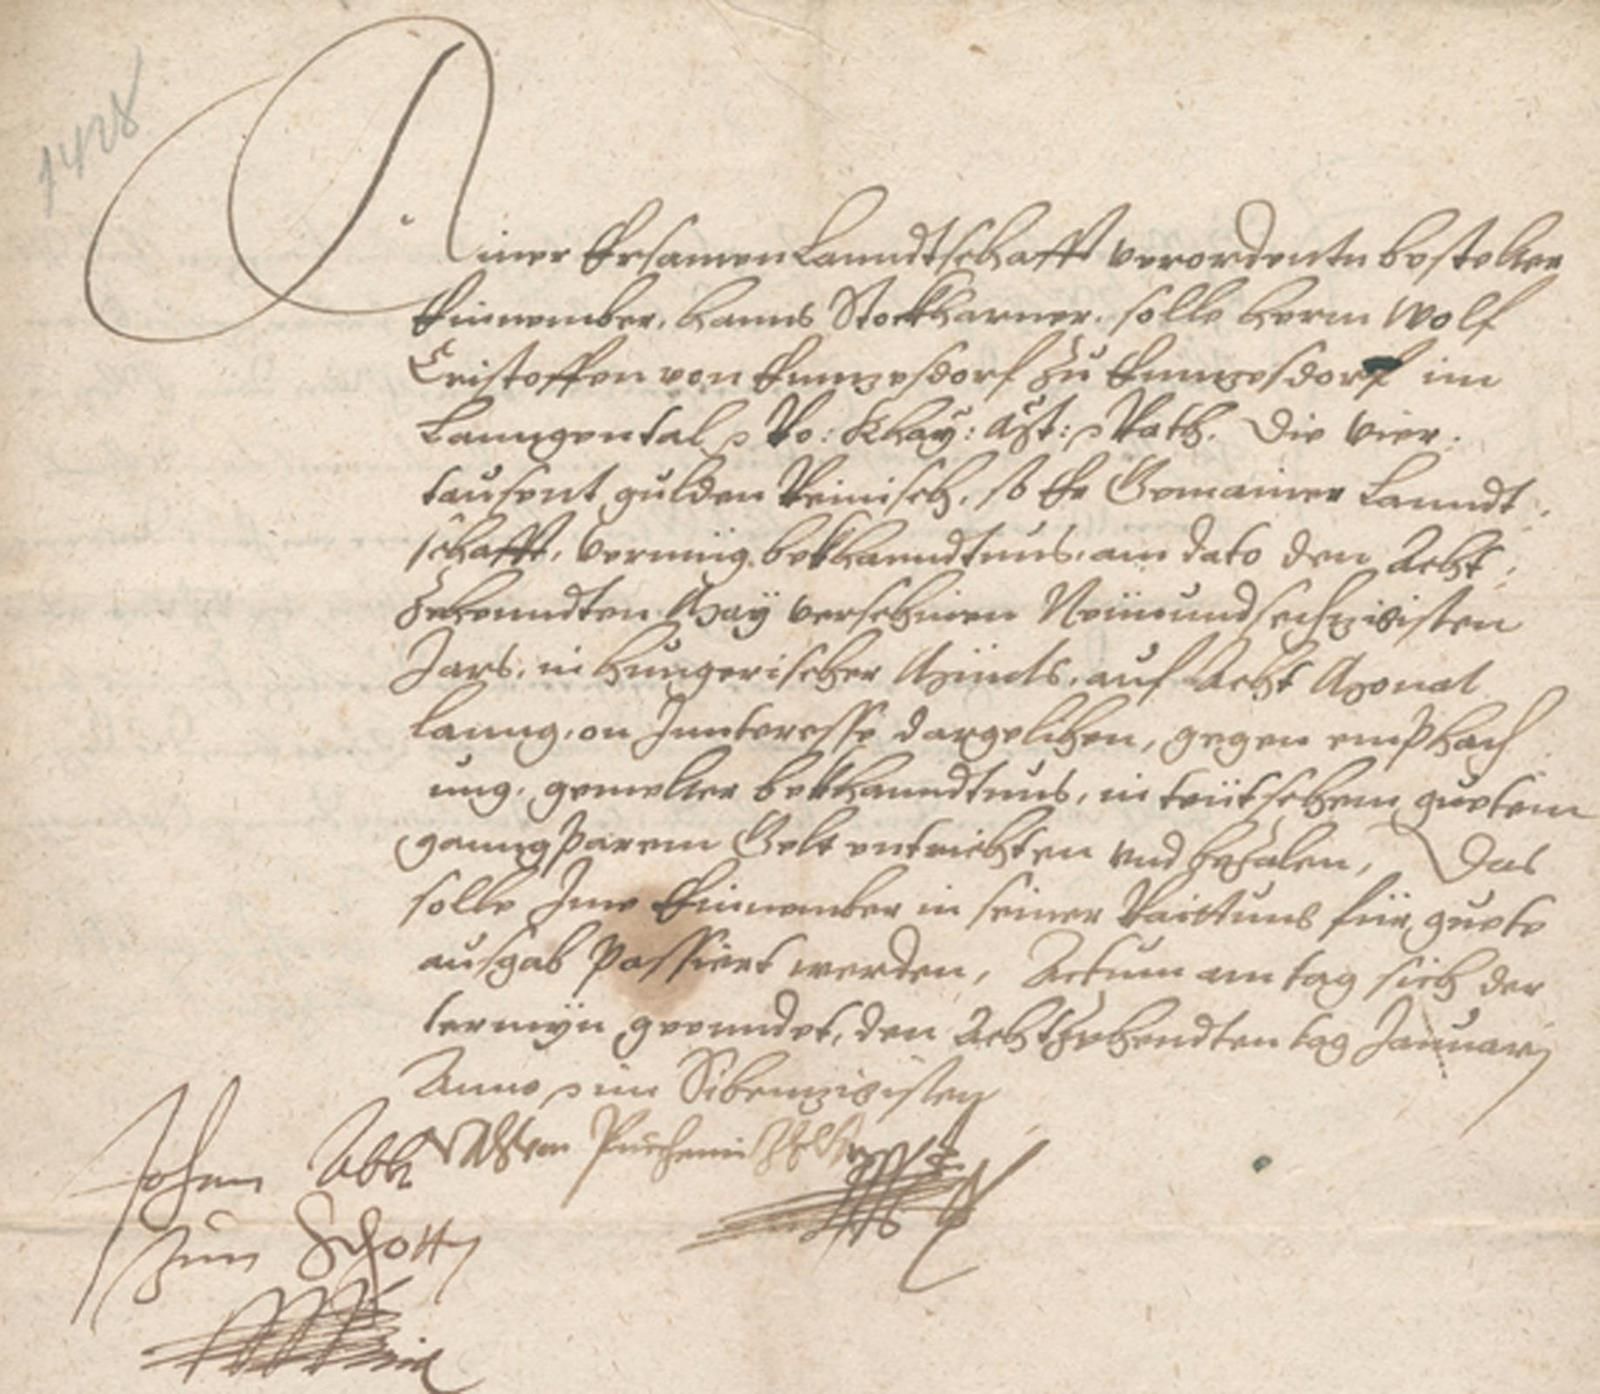 1428
Ainer Ersamen Lanndtschafft verordente bestelter
Einnember, Hanns Stockharner, solle herrn Wolf
Cristoffen von Ennzesdorf zu Ennzesdorf im
Lanngental, Ro: Khay: Mt: Rath, Die vier
tausent gulden Reinisch, so Er Gemainer Lanndt
schafft, vermüg bekhanndtnus, am dato den Acht
zehenndten May verschinen Neünundsechzigisten
Jars, in hungerischer Münts, auf Acht Monat
lanng, on Innteresse dargelihen, gegen emphach
ung, gemelter bekhanndtnus, in teütschem guetem
ganngparem Gelt entrichten und bezalen, Das
solle Ime Einnember in seiner Raittung für guete
ausgab Passiert werden, Actum am tag sich der
termyn geenndet, den Achtzehendten tag January
Anno im Sibenzigisten
Johan Abbt
zun Schotty